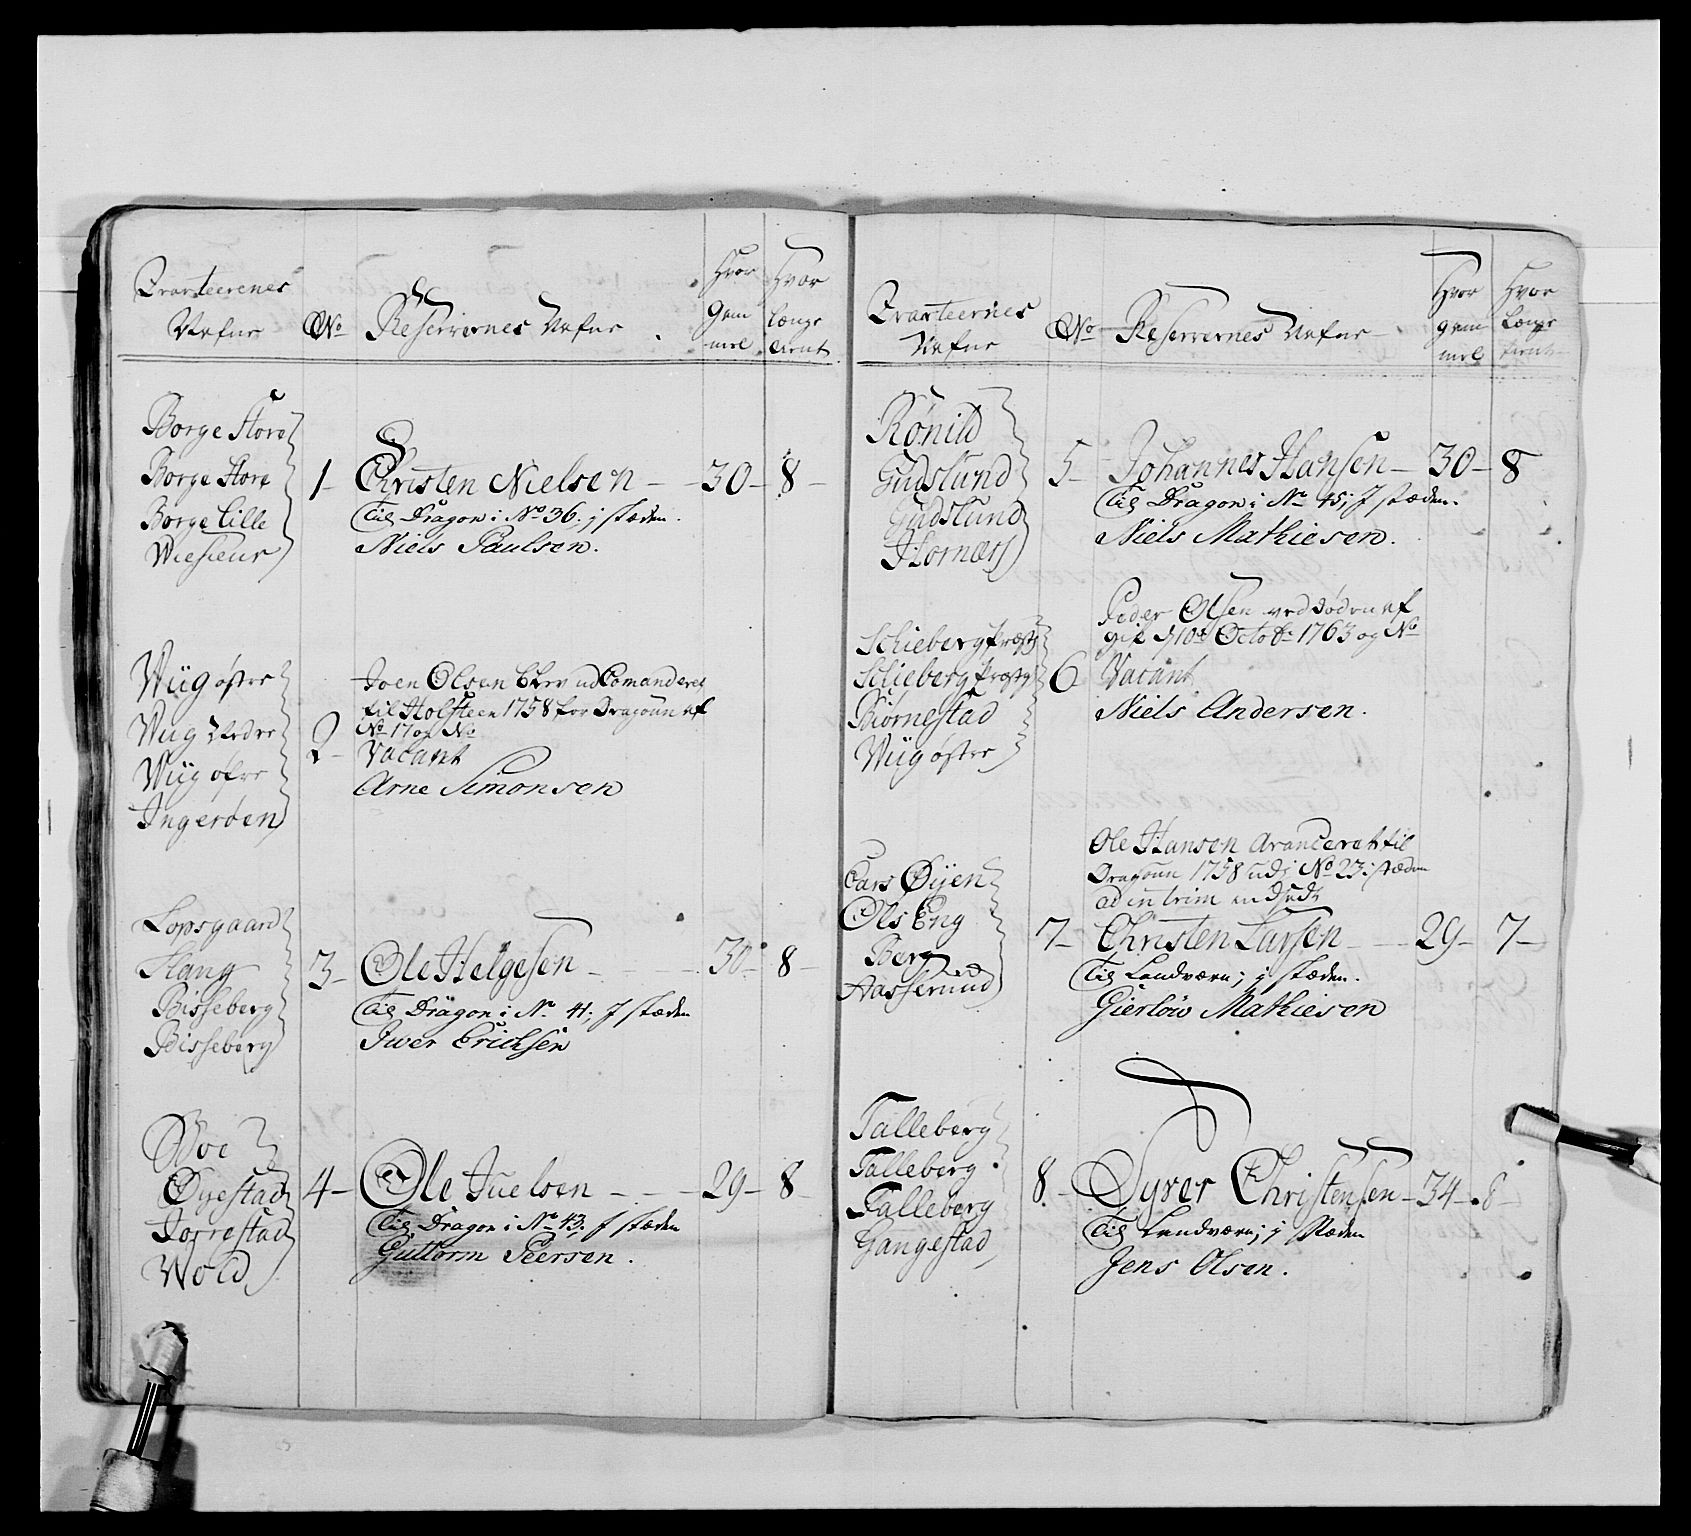 Qvarteerenes
Nafne
No
Reservernes Nafne
Hvor
Gam
mel
Hvor
længe
tient
Borge Store
Borge Store
Borge Lille
Wiesteur
1 Christen Nielsen - - 30 - 8 -
Til Dragon i No 36. j stæden.
Niels Paulsen.
Wiig østre
Wiig Nedre
Wiig øfre
Ingerøen
2 Joen Olsen blev udComanderet
til Holsteen 1758 for Dragoun af
No 17 og No
Vacant
Arne Simonsen
Lopsgaard
Slang
Bisseberg
Bisseberg
3 Ole Helgesen - - 30 - 8 -
Til Dragon i No 41; J stæden
Iwer Erichsen
Øyestad
Torrestad
Wold
4 - Ole Juelsen - - - 29 - 8 -
Til Dragon i No 43; J stæden
Guttorm Peersen.
Qvarteernes
Nafne
No
Reservernes Nafne
Hvor
gam
mel
Hvor
længe
tient
Rønild
Gudslund
Gudslund
Hornæs
5 - Johannes Hansen - 30 - 8
Til Dragon i No 45; J stæden.
Niels Mathiesen.
Schieberg Præstg
Schieberg Præstg
Biørnestad
Wiig østre
6 Peder Olsen ved Døden af
gik d 10de Octobr 1763 og No
Vacant
Niels Andersen.
Lars Øÿen
Ols Eng
Berg
Aasserud
7 - Ole Hansen Avanceret til
Dragoun 1758 udj No 23 i stæden
ad intrim
Christen Larsen - - 29 - 7 -
Til Landværn; j stæden.
Gierløw Mathiesen
Talleberg
Talleberg
Talleberg
Gangestad
8. - Syver Christensen - 34 - 8 -
Til Landværn; j stæden
Jens Olsen.